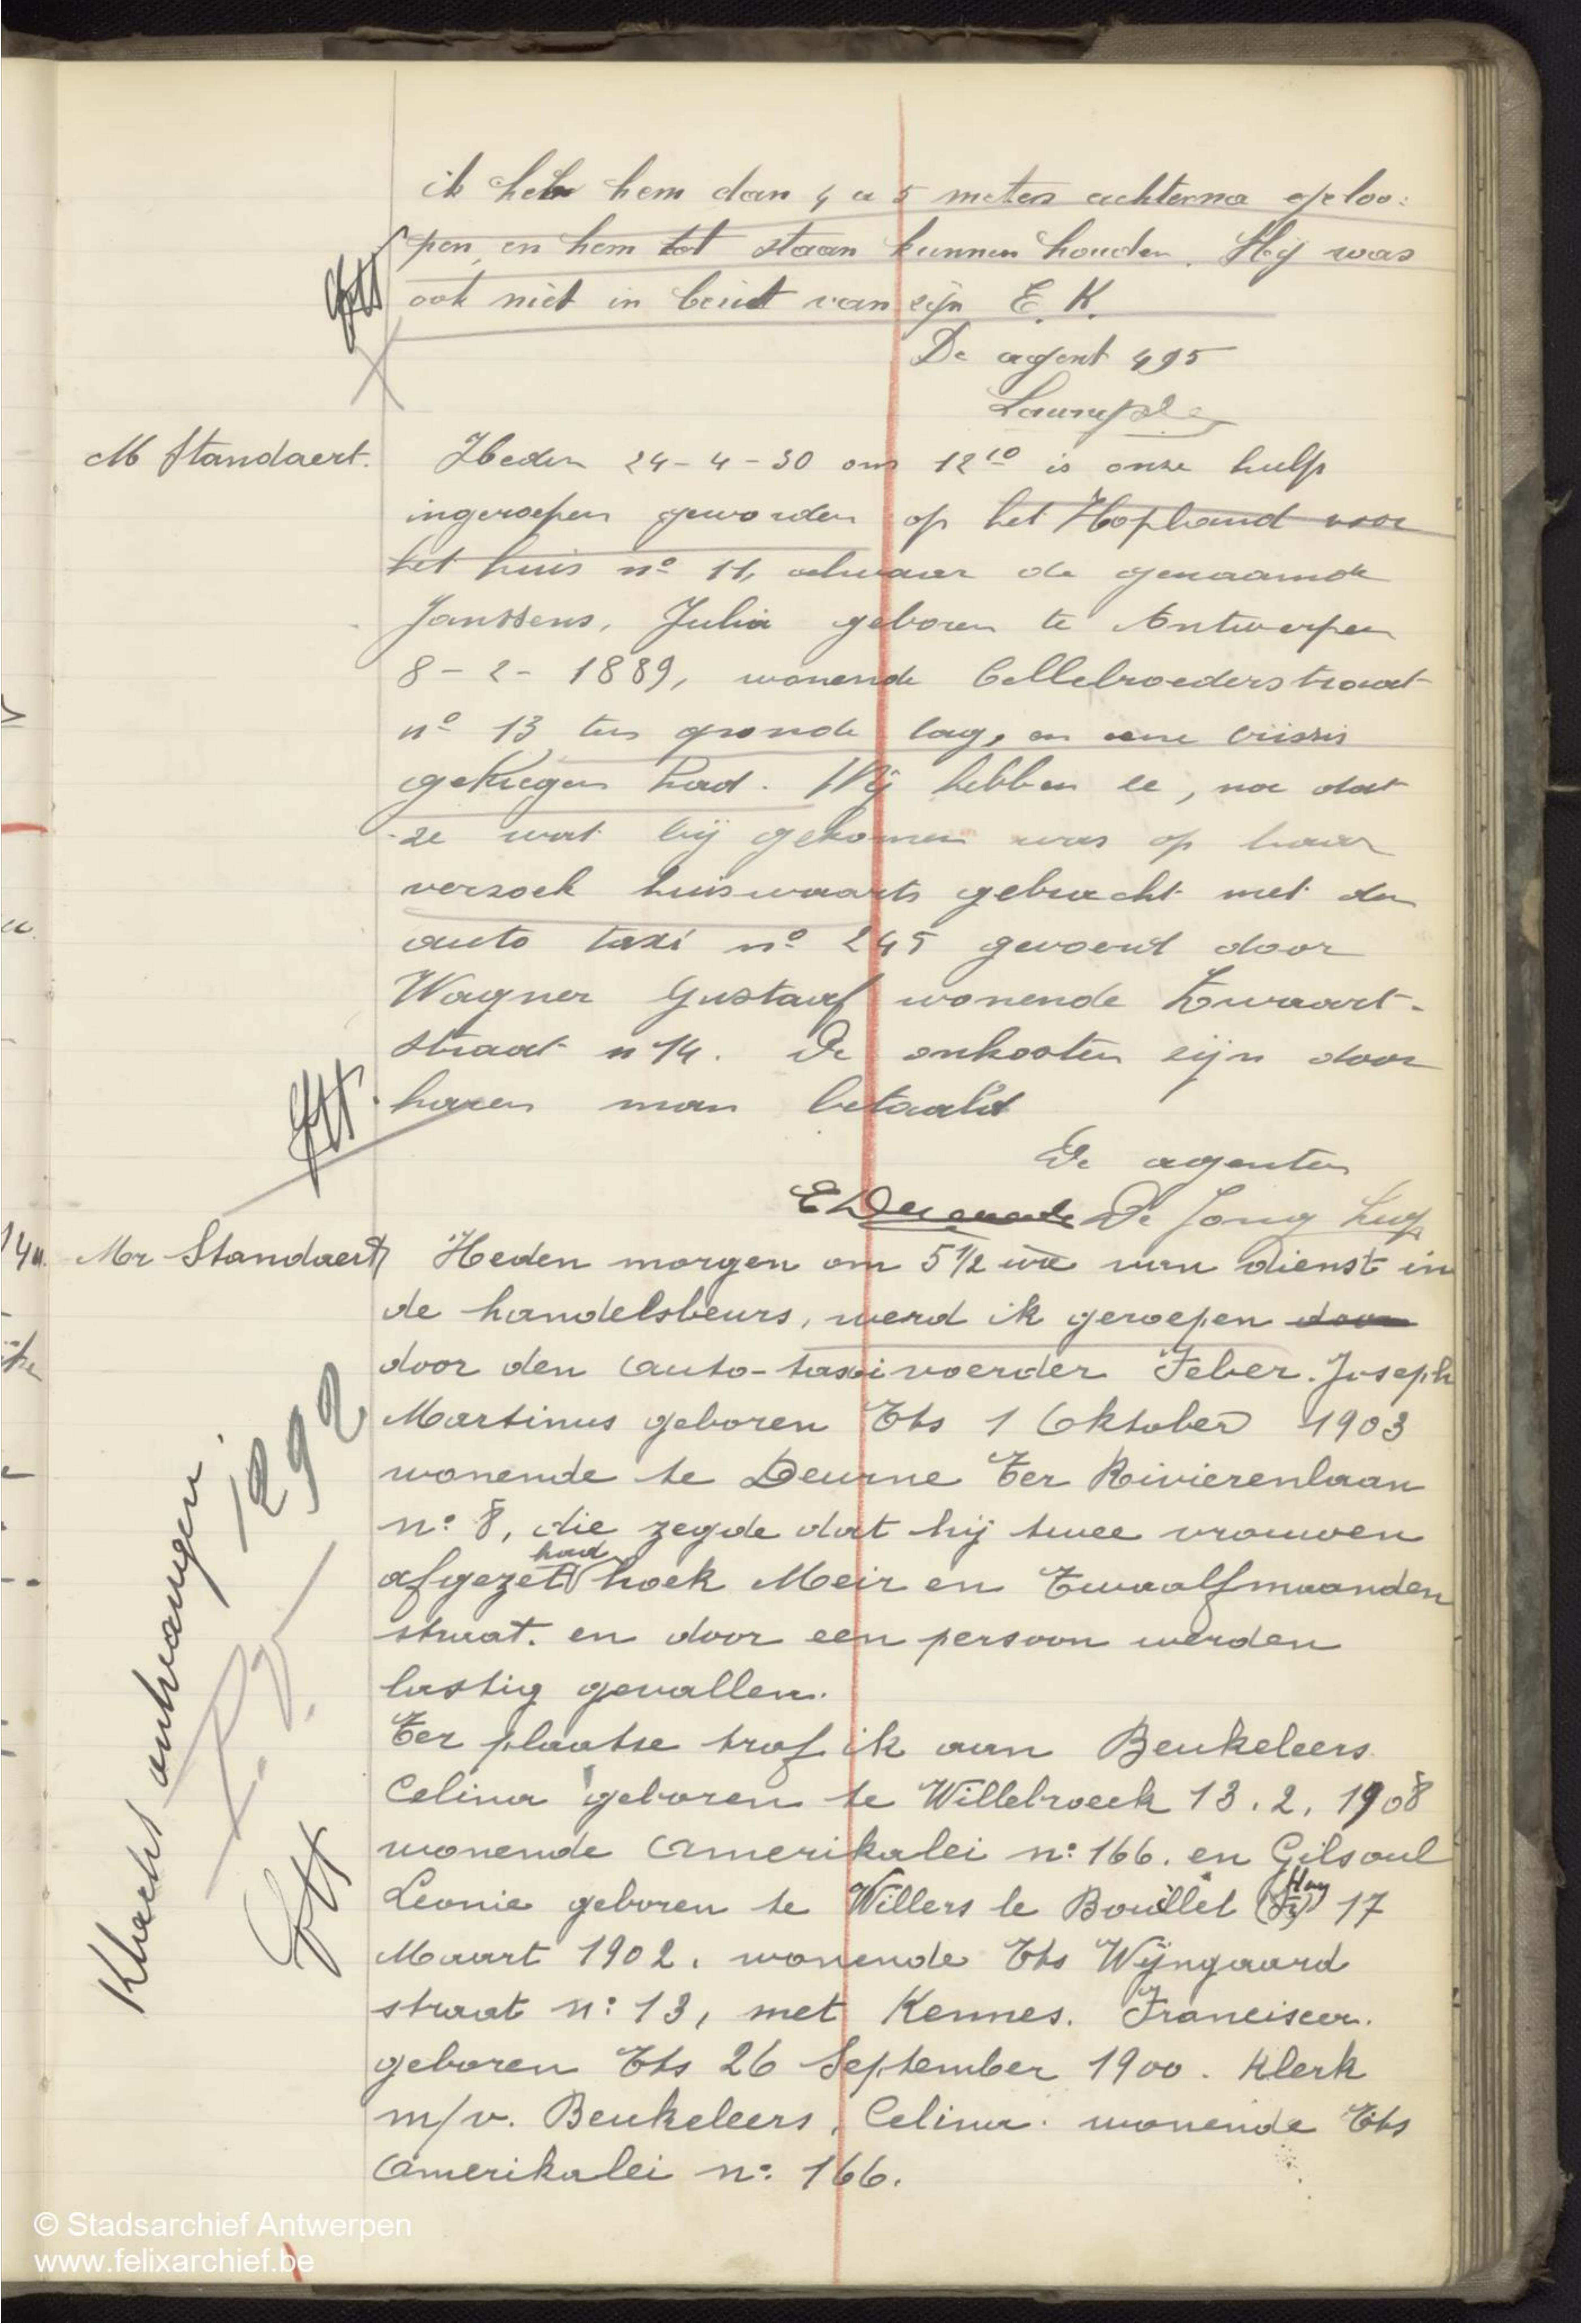 ik heb hem dan 4 a 5 meters achterna geloo:
pen, en hem tot staan kunnen houden. Hij was
ook niet in bezit van zijn E. K.
De agent 495
M Standaert.
Heden 24-4-30 om 12 10 is onze hulp
ingeroepen geworden op het Hopland voor
het huis nº 11, alwaar de genaamde
Janssens, Julia geboren te Antwerpen
8-2-1889, wonende Cellebroederstraat
nº 13 ten gronde lag, en eene crissis
gekregen had. Wij hebben ze, na dat
ze wat bij gekomen was op haar
verzoek huiswaarts gebracht met den
auto taxi nº 245 gevoerd door
Wagner Gustaaf wonende Zwaart-
straat n 14. De onkosten zijn door
haren man betaald
De agenten
De Jong
Mr Standaert
Heden morgen om 5 1/2 ure van dienst in
de handelsbeurs, werd ik geroepen door
door den auto-taxivoerder Feber. Joseph
Martinus geboren Ths 1 Oktober 1903
wonende te Deurne Ter Rivierenlaan
n: 8, die zegde dat hij twee vrouwen
had
afgezet hoek Meir en Twaalfmaanden
straat. en door een persoon werden
lastig gevallen.
Ter plaatse trof ik aan Beukeleers
Celina geboren te Willebroeck 13.2.1908
wonende Amerikalei n: 166. en Gilsoul
Leonie geboren te Willers le Bouillet (Hoy) 17
Maart 1902. wonende Ths Wijngaard
straat n: 13, met Kennes. Franciscus.
geboren Ths 26 September 1900. Klerk
m/v. Beukeleers, Celina. wonende Ths
Amerikalei n: 166.
Klacht ontvangen.
1292
© Stadsarchief Antwerpen
www.felixarchief.be